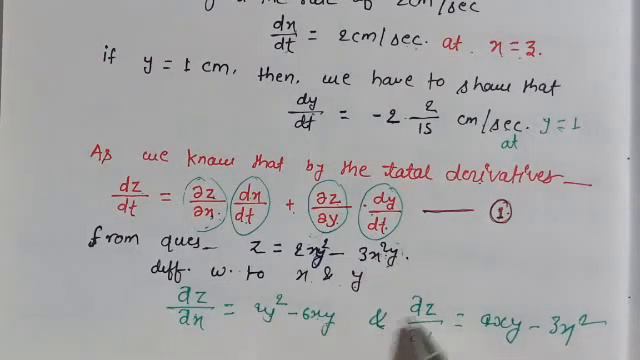 the rate of 2cm/sec
dx/dt = 2cm/sec. at x=3.
if y = 1 cm, then, we have to show that
dy/dt = -2 · 2/15 cm/sec. at y=1
As we know that by the tatal derivatives
dz/dt = ∂z/∂x · dx/dt + ∂z/∂y · dy/dt — ①
from ques_ z = 2xy² - 3x²y.
diff. w. to x & y
∂z/∂x = 2y² - 6xy & ∂z/ = 2xy - 3x²